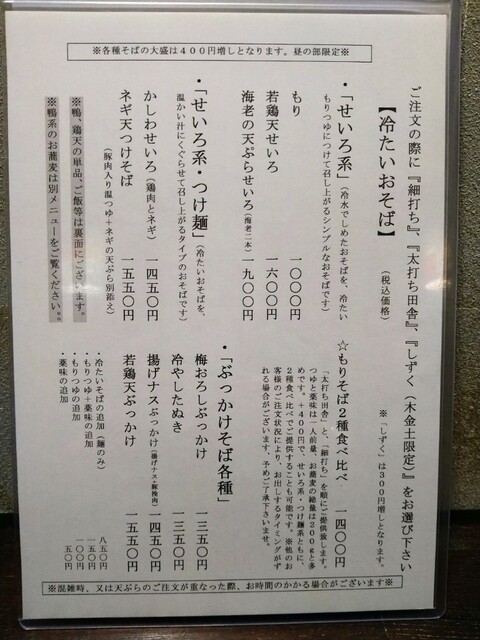 ※各種そばの大盛は４００円増しとなります。昼の部限定※
ご注文の際に『細打ち』、『太打ち田舎』、『しずく（木金土限定）』をお選び下さい
※「しずく」は３００円増しとなります。
【冷たいおそば】
（税込価格）
・「せいろ系」（冷水でしめたおそばを、冷たい
もりつゆにつけて召し上がるシンプルなおそばです）
もり　１０００円
若鶏天せいろ　１６００円
海老の天ぷらせいろ（海老二本）　１９００円
・「せいろ系・つけ麺」（冷たいおそばを、
温かい汁にくぐらせて召し上がるタイプのおそばです）
かしわせいろ（鶏肉とネギ）　１４５０円
ネギ天つけそば　１５５０円
（豚肉入り温つゆ＋ネギの天ぷら別添え）
※鴨、鶏天の単品、ご飯等は裏面にございます。
※鴨系のお蕎麦は別メニューをご覧ください。※
☆もりそば２種食べ比べ　１４００円
「太打ち田舎」と、「細打ち」を順にご提供致します。
つゆと薬味は一人前量、お蕎麦の総量は２００gと多
めです。＋４００円で、せいろ系・つけ麺系ともに、
２種食べ比べでご提供することも可能です。※他のお
客様のご注文状況により、お出しするタイミングがず
れる場合がございます、予めご了承下さいませ。
・「ぶっかけそば各種」
梅おろしぶっかけ　１３５０円
冷やしたぬき　１３５０円
揚げナスぶっかけ（揚げナス・豚挽肉）　１４５０円
若鶏天ぶっかけ　１５５０円
・冷たいそばの追加（麺のみ）　８５０円
・もりつゆ＋薬味の追加　１５０円
・もりつゆの追加　１００円
・薬味の追加　５０円
※混雑時、又は天ぷらのご注文が重なった際、お時間のかかる場合がございます※